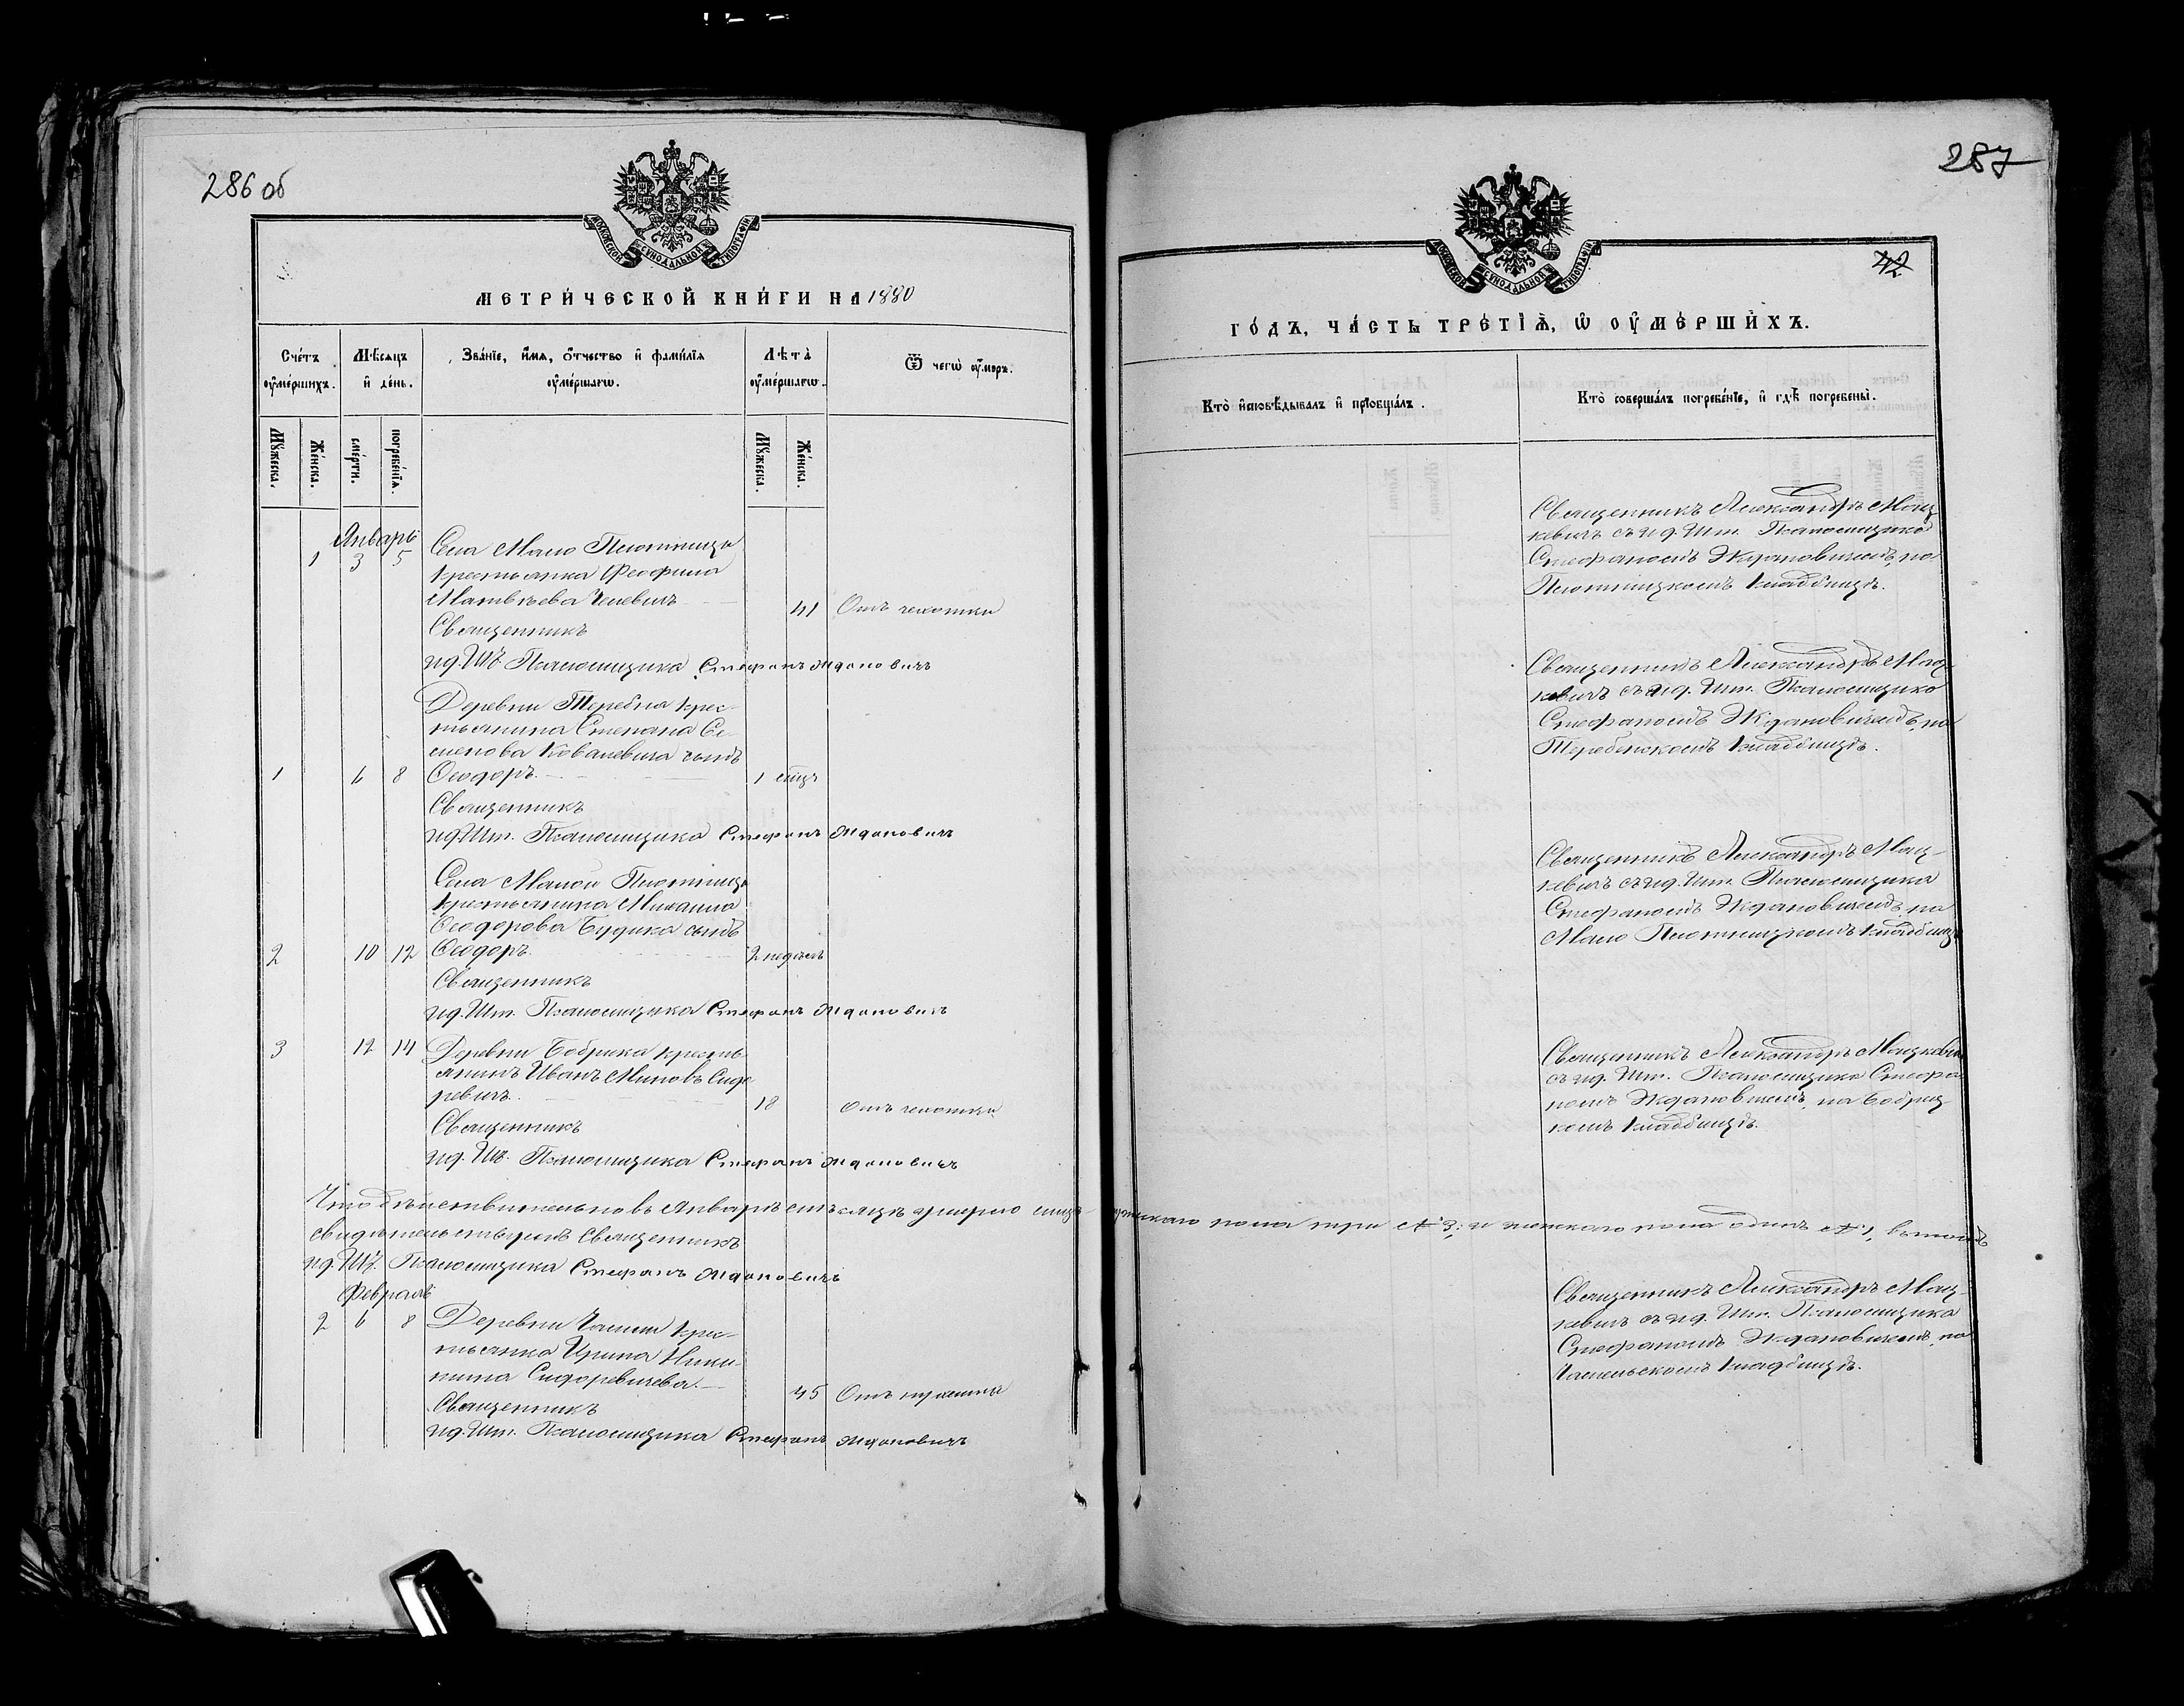 286 об
МОСКОВСКОЙ СѴНОДАЛЬНОЙ ТИПОГРАФІИ
МЕТРИ́ЧЕСКОЙ КНИ́ГИ НА 1880
Сче́тъ оу҆ме́ршихъ.
Мѣ́сяцъ и҆ де́нь.
Зва́нїе, и҆́мя, ѻ҆́тчество и҆ фами́лїя оу҆ме́ршагѡ.
Лѣта̀ оу҆ме́ршагѡ.
Ѿ чегѡ̀ оу҆́меръ.
Мꙋ́жеска.
Же́нска.
сме́рти.
погребе́нїя.
Мꙋ́жеска.
Же́нска.
Январь
1 3 5 Села Мало Плотницы
крестьянка Феофила
Матвѣева Челевичъ 41 Отъ чахотки
Священникъ
ид. Шт. Псаломщика Стефанъ Ждановичъ
Деревни Теребна крес-
тьянина Степана Се-
менова Ковалевича сынъ
1 6 8 Ѳеодоръ. 1 мѣсцъ
Священникъ
ид. Шт. Псаломщика Стефанъ Ждановичъ
Села Малой Плотницы
крестьянина Михаила
Ѳеодорова Будика сынъ
2 10 12 Ѳеодоръ. 2 недѣль
Священникъ
ид. Шт. Псаломщика Стефанъ Ждановичъ
3 12 14 Деревни Бобрика кресть-
янинъ Иванъ Миновъ Сидо-
ревичъ. 18 Отъ чахотки
Священникъ
ид. Шт. Псаломщика Стефанъ Ждановичъ
Что дѣйствительно въ Январѣ мѣсяцѣ умерло лицъ мужскаго пола три № 3; и женскаго пола одинъ № 1, въ томъ
свидѣтельствуемъ Священникъ
ид. Шт. Псаломщика Стефанъ Ждановичъ
Февраль
2 6 8 Деревни крес-
тьянка Ирина Ники-
тина Сидоревичева. 45 Отъ
Священникъ
ид. Шт. Псаломщика Стефанъ Ждановичъ
287
42
МОСКОВСКОЙ СѴНОДАЛЬНОЙ ТИПОГРАФІИ
ГО́ДЪ, ЧА́СТЬ ТРЕ́ТЇѦ, Ѡ҆ ОУ҆МЕ́РШИХЪ.
Кто̀ и҆сповѣ́дывалъ и҆ прїобща́лъ.
Кто̀ соверша́лъ погребе́нїе, и҆ гдѣ̀ погребены̀.
Священникъ Александръ Мац-
кевичъ съ ид. Шт. Псаломщика
Стефаномъ Ждановичемъ, на
Плотницкомъ кладбищѣ.
Священникъ Александръ Мац-
кевичъ съ ид. Шт. Псаломщика
Стефаномъ Ждановичемъ, на
Теребенскомъ кладбищѣ.
Священникъ Александръ Мац-
кевичъ съ ид. Шт. Псаломщика
Стефаномъ Ждановичемъ, на
Мало Плотницкомъ кладбищѣ
Священникъ Александръ Мацкевичъ
съ ид. Шт. Псаломщика Стефа-
номъ Ждановичемъ, на Бобриц-
комъ кладбищѣ.
Священникъ Александръ Мац-
кевичъ съ ид. Шт. Псаломщика
Стефаномъ Ждановичемъ, на
кладбищѣ.